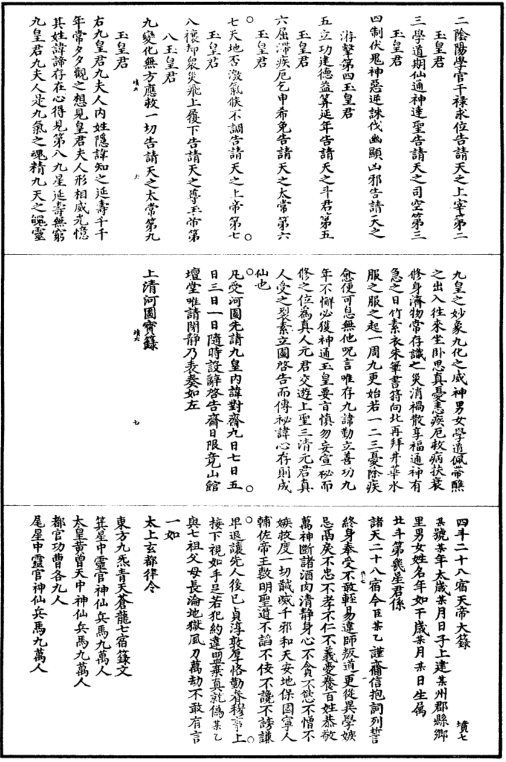 二陰陽學官千祿求位告請天之上宰第二
玉皇君
三學道期仙通神達聖告請天之司空第三
玉皇君
四制伏鬼神惡逆誅伐幽顯凶邪告請天之
游擊第四玉皇君
五立功建德益筭延年告請天之斗君第五
玉皇君
六屈滯疾厄乞申希免告請天之太常第六
玉皇君
七天地否激氣候不調告請天之上帝第七
玉皇君
八禳却衆災飛上覆下告請天之尊玉帝第
八玉皇君
九變化無方應救一切告請天之太常第九
玉皇君
右九皇君九夫人内姓隱諱知之延壽千千
年常夕夕觀之想見皇君夫人形相威光憶
其姓諱諦存在心得見第八九星延壽無窮
九皇君九夫人是九氣之魂精九天之魄靈
九皇之妙象九化之威神男女學道佩帶醮
之出入往來坐卧思真憂恚疾厄救病扶衰
修身濟物常存識之災消禍散享福通神有
急之日竹素衣朱筆書符向北再拜井華水
服之服之起一周九更始若一二三憂除疾
愈便可息無他呪言唯存九諱勤立善功九
年不懈必獲神通玉皇要旨慎勿妄宣秘而
修之位為真人元君交遊上聖三清元君真
人受之裂素立圖啓告而傳秘諱心存則成
仙也
凡受河圖先請九皇内諱對齋九日七日五
日三日一日隨時設辭啓告齋日限竟山館
壇堂唯請閒靜乃表奏如左
上清河圖寶籙
四斗二十八宿天帝大籙
某號某年太歲某月日子上建某州郡縣鄉
里男女姓名年如干歲某月某日生屬
北斗第幾星君係
諸天二十八宿今臣某乙謹齎信抱詞列誓
終身奉受不敢輕易違師叛道更從異學嫉
忌兩炁不忠不孝不仁不義愛養百姓恭敬
萬神斷諸酒肉清靜身心不貪不慾不憎不
嫉救度一切誠感千邪和天安地保國寧人
輔佐帝王數明聖道不謟不伎不讒不謗謙
早退讓先人後己貞淳敦厚恪勤脊穆
接下視如手足若犯約違盟棄真就偽某乙
與七祖父母長淪地獄風刀萬劫不敢有言
一如
太上玄都律令
東方九炁青天蒼龍七宿籙文
箕星中靈官神仙兵馬九萬人
太皇黄曾天中神仙兵馬九萬人
都官功曹各九人
尾星中靈官神仙兵馬九萬人